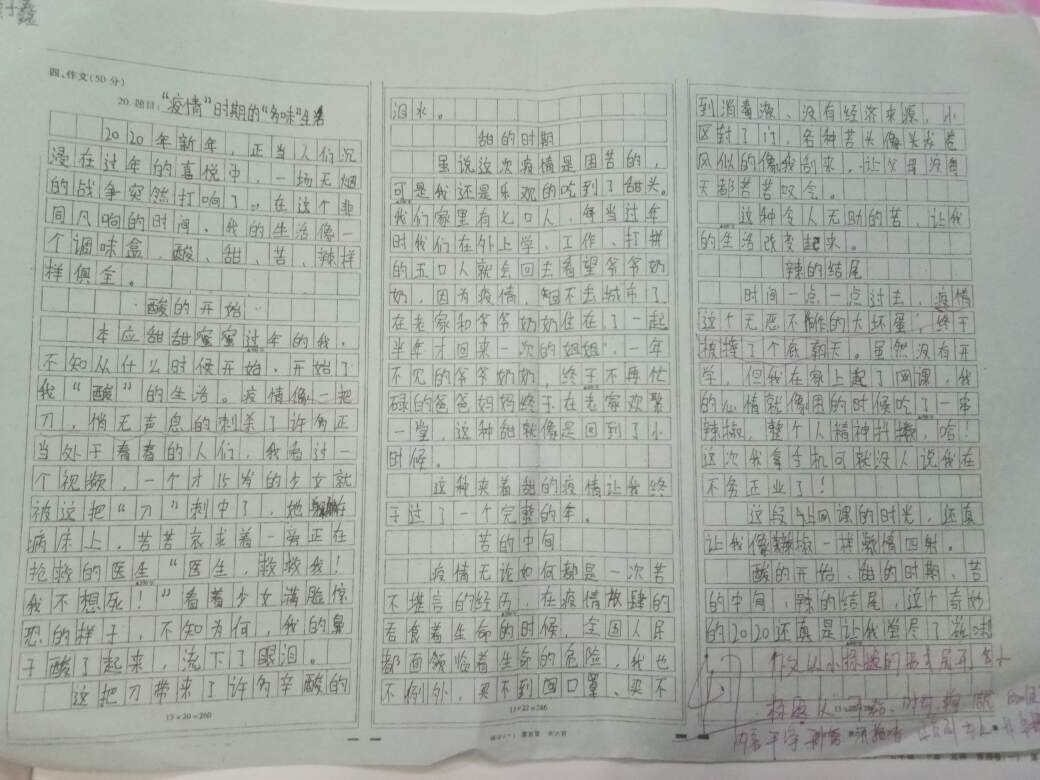 四、作文(50分)
20.题目:“疫情”时期的“多味”生活
2020年新年,正当人们沉
浸在过年的喜悦中,一场无烟
的战争突然打响了。在这个非
同凡响的时间,我的生活像一
个调味盒,酸、甜、苦、辣样
样俱全。
酸的开始
本应甜甜蜜蜜过年的我,
不知从什么时候开始,开始了
我“酸”的生活。疫情像一把
刀,悄无声息的刺杀了许多正
当处于青春的人们,我看过一
个视频,一个才15岁的少女就
被这把“刀”刺中了,她躺在
病床上,苦苦哀求着一旁正在
抢救的医生“医生,救救我!
我不想死!”看着少女满脸惊
恐的样子,不知为何,我的鼻
子酸了起来,流下了眼泪。
这把刀带来了许多辛酸的
13×20=260
泪水。
甜的时期
虽说这次疫情是困苦的,
可是我还是乐观的吃到了甜头。
我们家里有七口人,每当过年
时我们在外上学、工作、打拼
的五口人就会回去看望爷爷奶
奶,因为疫情,回不去城市了,
在老家和爷爷奶奶住在了一起
半年才回来一次的姐姐,一年
不见的爷爷奶奶,终于不再忙
碌的爸爸妈妈终于在老家欢聚
一堂,这种甜就像是回到了小
时候。
这种夹着甜的疫情让我终
于过了一个完整的年。
苦的中间
疫情无论如何都是一次苦
不堪言的经历,在疫情放肆的
吞食着生命的时候,全国人民
都面领临着生命的危险,我也
不例外,买不到口罩、买不
到消毒液、没有经济来源,小
区封了门,各种苦头像头发卷
风似的像我刮来,让父母没每
天都苦苦叹会。
这种令人无助的苦,让我
的生活改变起来。
辣的结尾
时间一点一点过去,疫情
这个无恶不作的大坏蛋,终于
被摔了个底朝天。虽然没有开
学,但我在家上起了网课,我
的心情就像困的时候吃了一串
辣椒,整个人精神抖擞,哈!
这次我拿手机可就没人说我在
不务正业了!
这段上网课的时光,还真
让我像辣椒一样激情四射。
酸的开始、甜的时期、苦
的中间、辣的结尾,这个奇妙
的2020还真是让我尝尽了
作文以小标题的形式展开